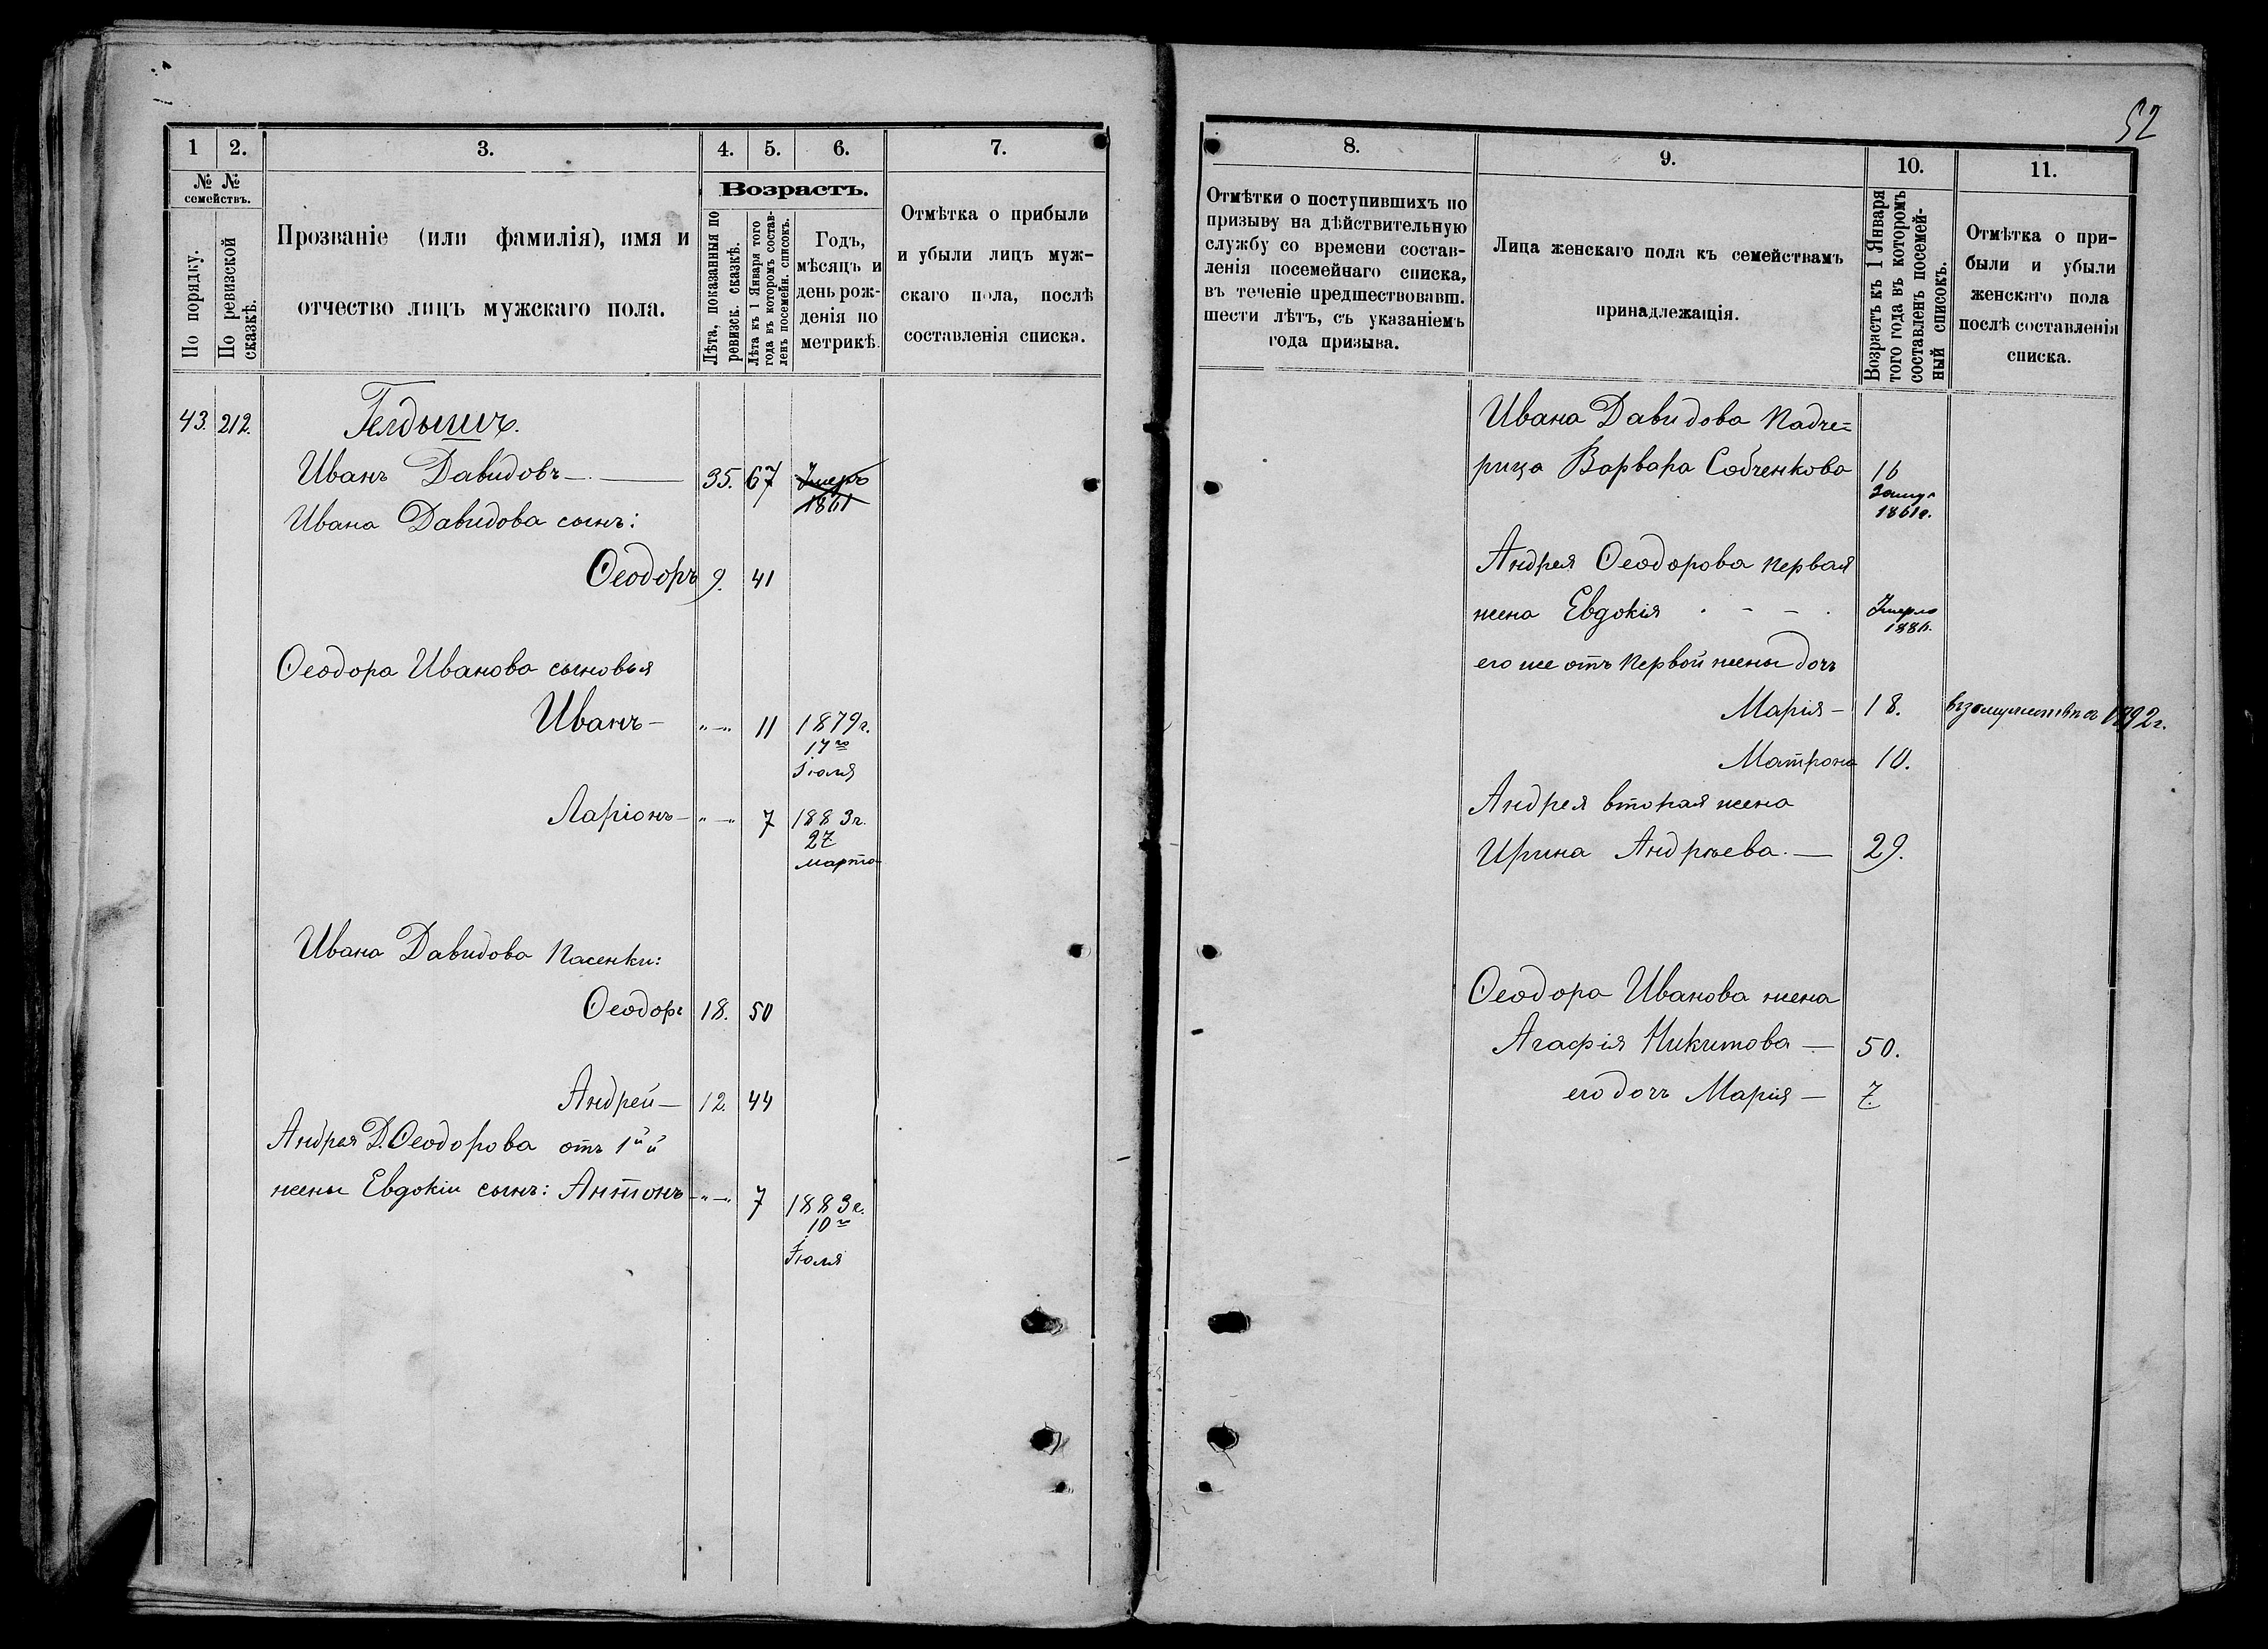 52
1
2.
3.
4.
5.
6.
7.
№ №
семействъ.
По порядку.
По ревизской
сказкѣ.
Прозваніе (или фамилія), имя и
отчество лицъ мужскаго пола.
Возрастъ.
Лѣта, показанныя по
ревизск. сказкѣ.
Лѣта къ 1 Января того
года въ которомъ состав-
ленъ посемейн. списокъ.
Годъ,
мѣсяцъ и
день рож-
денія по
метрикѣ.
Отмѣтка о прибыли
и убыли лицъ муж-
скаго пола, послѣ
составленія списка.
43. 212. Гелдышъ.
Иванъ Давидовъ — 35. 67 Умеръ
1861
Ивана Давидова сынъ:
Ѳеодоръ 9. 41
Ѳеодора Иванова сыновья
Иванъ — „—„ 11 1879 г.
17го
Іюля
Ларіонъ — „—„ 7 1883 г.
27
марта
Ивана Давидова пасенки:
Ѳеодоръ 18. 50
Андрей — 12. 44
Андрея Д. Ѳеодорова отъ 1й
жены Евдокіи сынъ: Антонъ „—„ 7 1883 г.
10го
Іюля
8.
9.
10.
11.
Отмѣтки о поступившихъ по
призыву на дѣйствительную
службу со времени состав-
ленія посемейнаго списка,
въ теченіе предшествовавш.
шести лѣтъ, съ указаніемъ
года призыва.
Лица женскаго пола къ семействамъ
принадлежащія.
Возрастъ къ 1 Января
того года въ которомъ
составленъ посемей-
ный списокъ.
Отмѣтка о при-
были и убыли
женскаго пола
послѣ составленія
списка.
Ивана Давидова падче=
рица Варвара Собченкова 16
Замуж
1861 г.
Андрея Ѳеодорова первая
жена Евдокія - - - Умерла
188
его же отъ первой жены дочь
Марія — 18. 1892 г.
Матрона 10.
Андрея вторая жена
Ирина Андрѣева. — 29.
Ѳеодора Иванова жена
Агафія Никитова — 50.
его дочь Марія — 7.